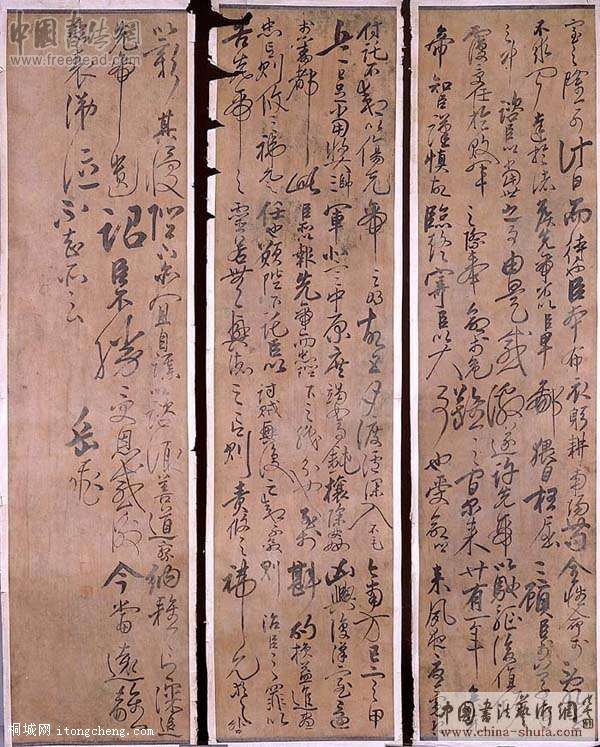 室之隆可計日而待也臣本布衣躬耕南陽苟全性命於亂
不求聞達於諸侯先帝不以臣卑鄙猥自枉屈三顧臣於草
之中諮臣以當世之事由是感激遂許先帝以驅馳後值
覆受任於敗軍之際奉命於危難之間爾來廿有一年
帝知臣謹慎故臨終寄臣以大事也受命以來夙夜
付託不效以傷先帝之明故五月渡瀘深入不毛今南方已定甲
兵已足當獎帥三軍北定中原庶竭駑鈍攘除姦凶興復漢室還
於舊都此臣所以報先帝而忠陛下之職分也至於斟酌損益進盡
忠言則攸之禕允之任也願陛下託臣以討賊興復之效不效則治臣之罪以
告先帝之靈若無興德之言則責攸之禕允等之咎
以彰其慢陛下亦宜自謀以諮諏善道察納雅言深追
先帝遺詔臣不勝受恩感激今當遠離臨
表涕泣不知所云
岳飛
中国书法艺术网
www.freehead.com
桐城网 itongcheng.com
中國書法藝術網
www.china-shufa.com